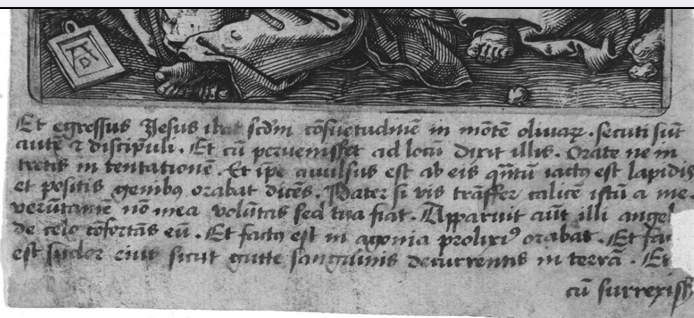 AD
Et egressus Jesus ibat scd̄m cōsuetudinē in mōtē olivaꝝ. secuti sūt
autē ⁊ discipuli. Et cū pervenisset ad locū dixit illis. Orate ne in
tretis in tentationē. Et ipe avulsus est ab eis q̄ntū iactꝰ est lapidis
et positis genibꝰ orabat dicēs. Pater si vis trāsfer calicē istū a me.
verūtamē nō mea volūtas sed tua fiat. Apparuit aūt illi angel
de celo cōfortās eū. Et factꝰ est in agonia prolixiꝰ orabat. Et fac
est sudor eius sicut gutte sanguinis decurrentis in terrā. Et
cū surrexiss